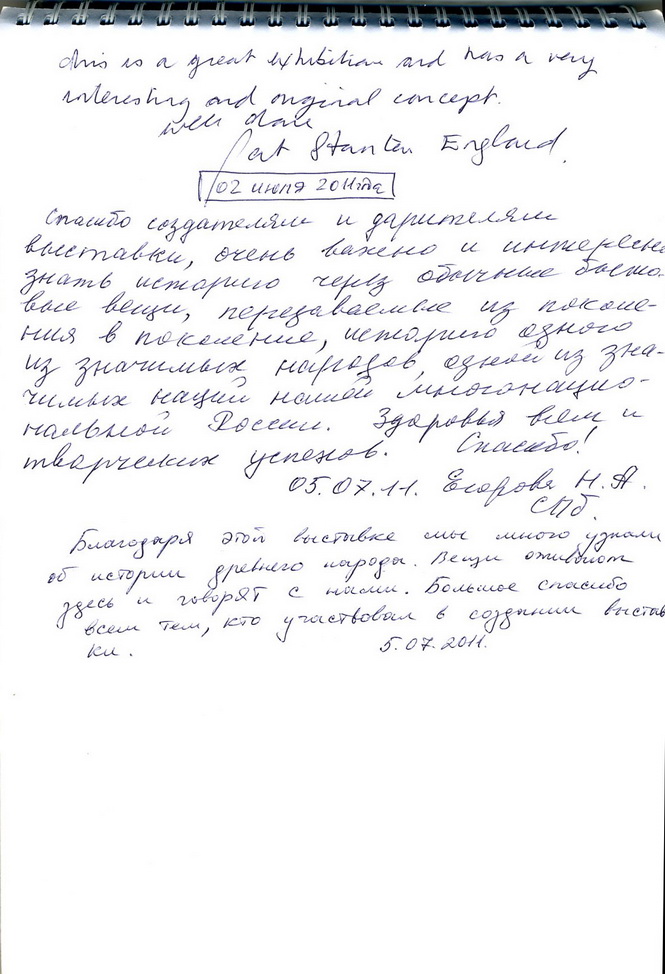 this is a great exhibition and has a very
interesting and original concept.
well done
Pat Stanten England.
02 июля 2011 года
Спасибо создателям и дарителям
выставки, очень важно и интересно
знать историю через обычные быто-
вые вещи, передаваемые из поколе-
ния в поколение, историю одного
из значимых народов, одной из зна-
чимых наций нашей многонацио-
нальной России. Здоровья всем и
творческих успехов. Спасибо!
05.07.11. Егорова Н.А.
СПб.
Благодаря этой выставке мы много узнали
об истории древнего народа. Вещи оживают
здесь и говорят с нами. Большое спасибо
всем тем, кто участвовал в создании выстав
ки. 5.07.2011.